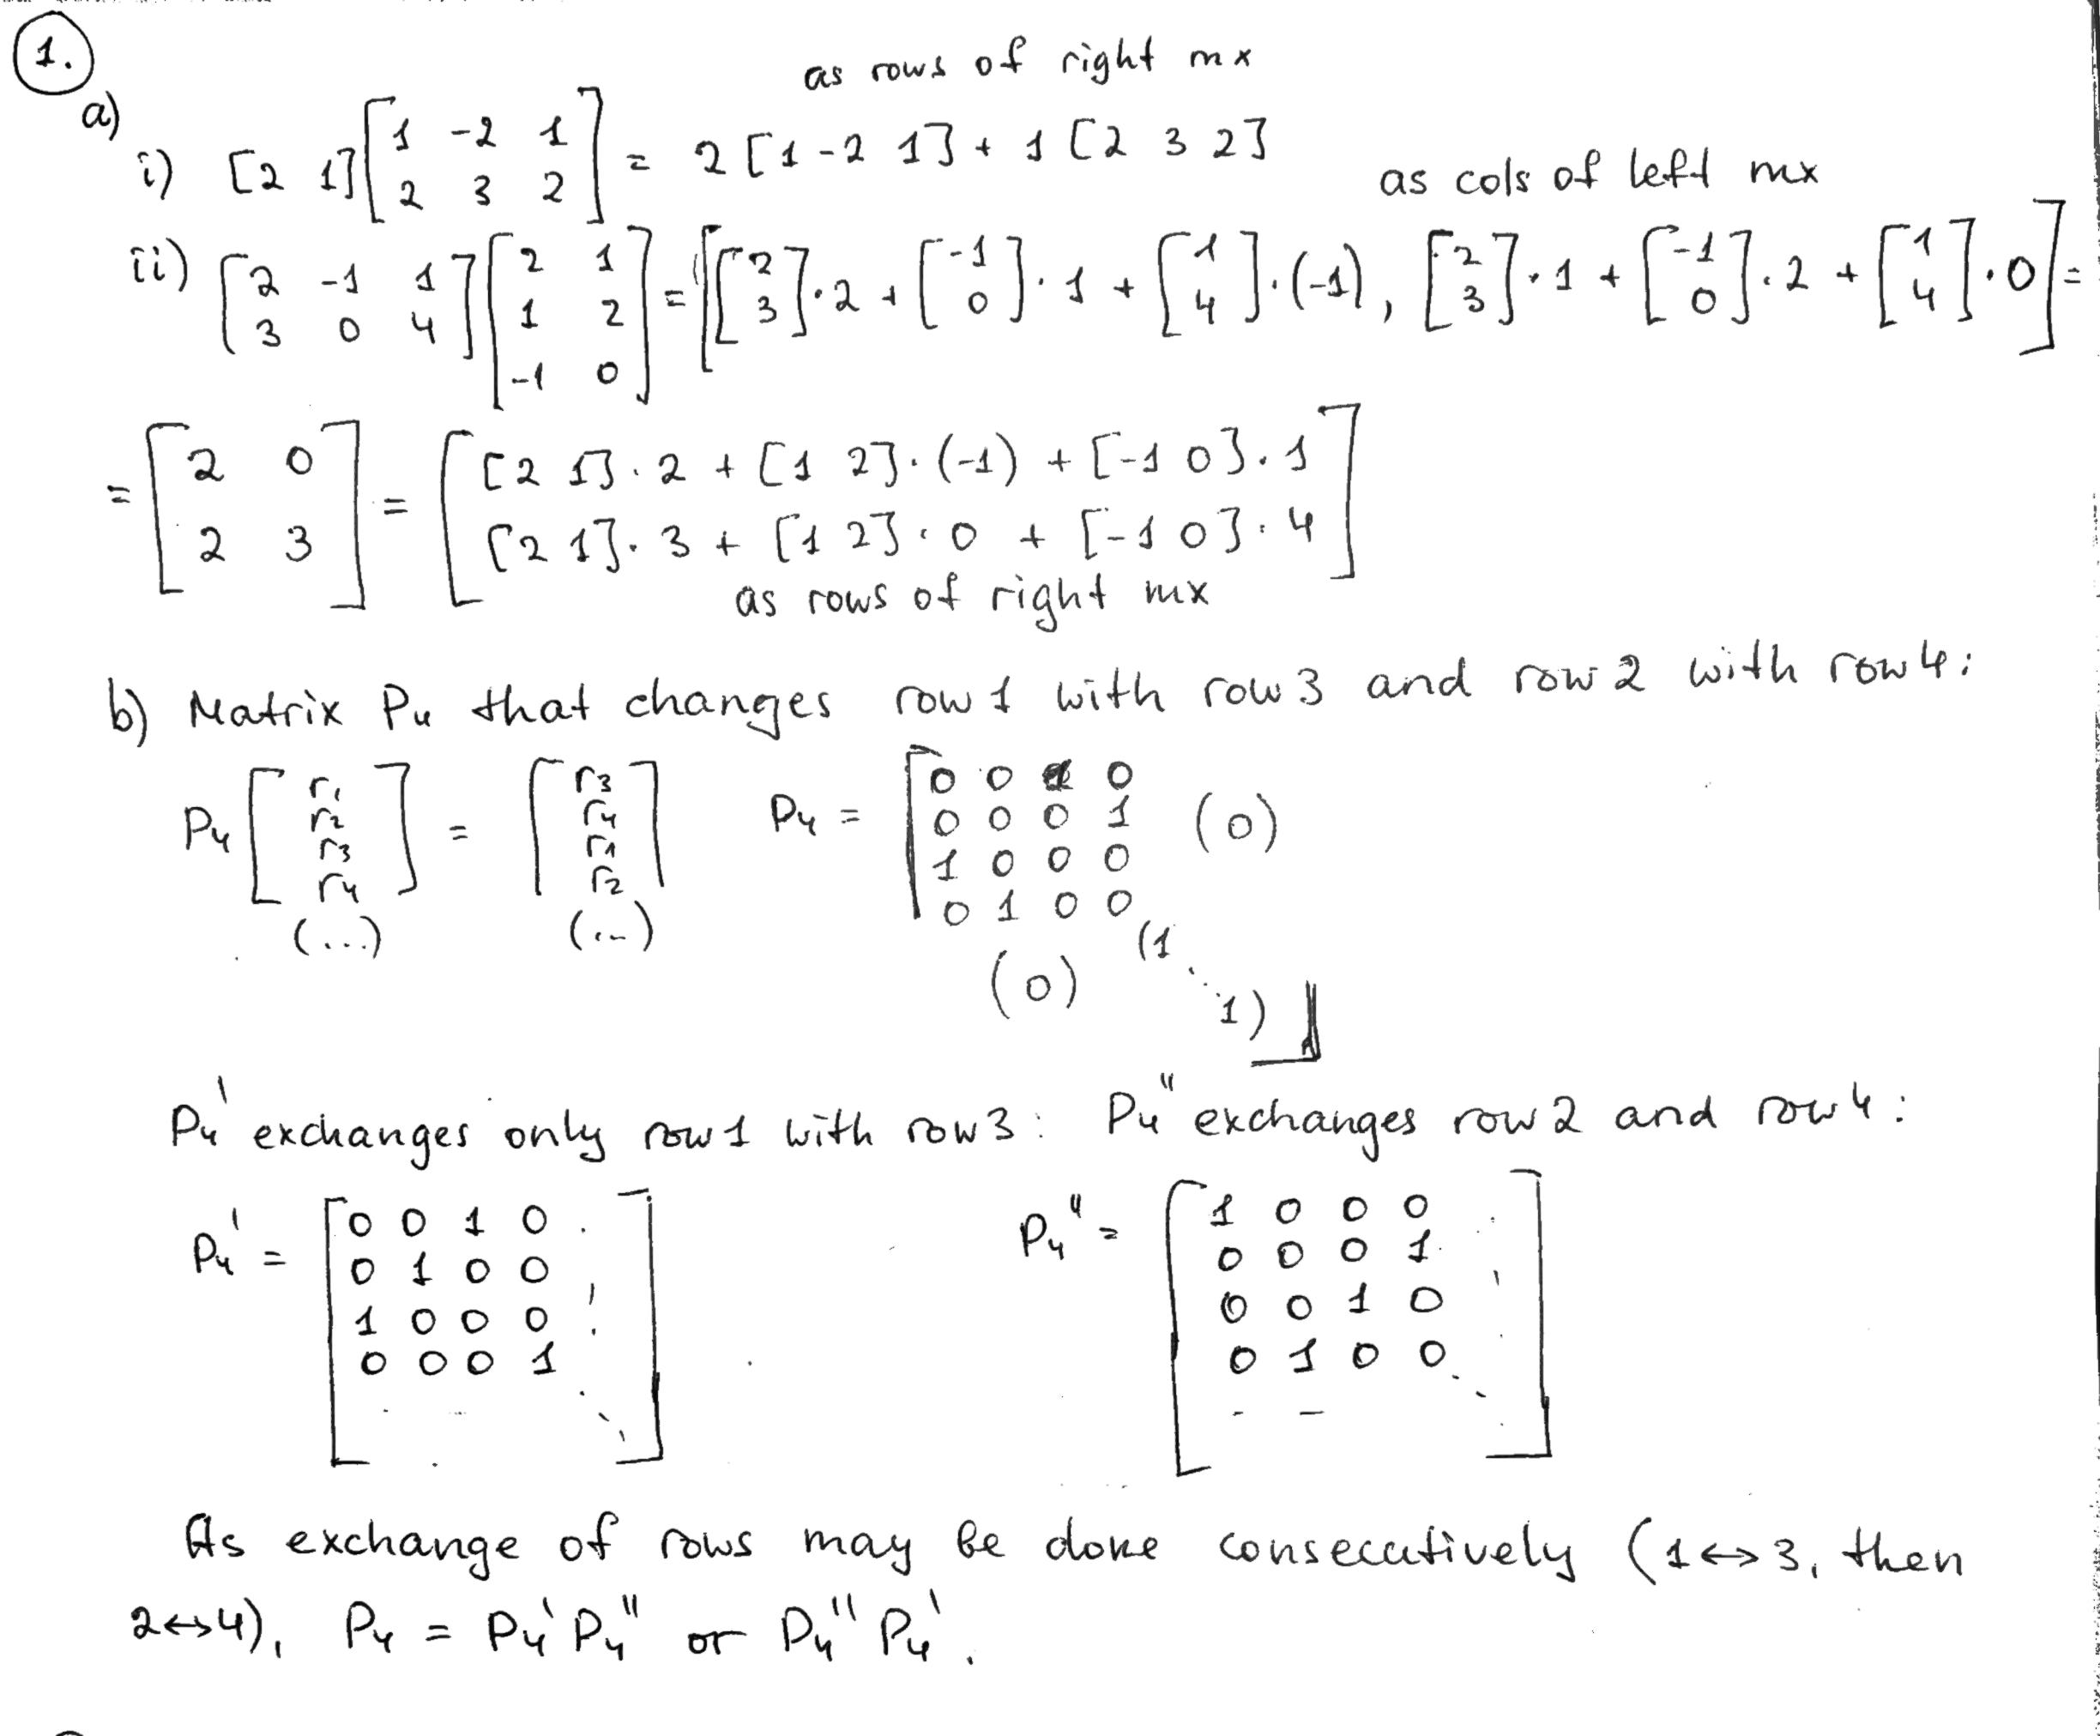 1.
a)
as rows of right mx
i) [2 1] [1 -2 1; 2 3 2] = 2 [1 -2 1] + 1 [2 3 2]
as cols of left mx
ii) [2 -1 1; 3 0 4] [2 1; 1 2; -1 0] = [[2; 3]·2 + [-1; 0]·1 + [1; 4]·(-1), [2; 3]·1 + [-1; 0]·2 + [1; 4]·0] =
= [2 0; 2 3] = [[2 1]·2 + [1 2]·(-1) + [-1 0]·1; [2 1]·3 + [1 2]·0 + [-1 0]·4]
as rows of right mx
b) Matrix P4 that changes row 1 with row 3 and row 2 with row 4:
P4 [r1; r2; r3; r4] = [r3; r4; r1; r2] P4 = [0 0 1 0; 0 0 0 1; 1 0 0 0; 0 1 0 0] (0)
(...) (...) (1
(0) ⋱ 1)
P4' exchanges only row 1 with row 3: P4'' exchanges row 2 and row 4:
P4' = [0 0 1 0; 0 1 0 0; 1 0 0 0; 0 0 0 1] P4'' = [1 0 0 0; 0 0 0 1; 0 0 1 0; 0 1 0 0]
As exchange of rows may be done consecutively (1↔3, then
2↔4), P4 = P4' P4'' or P4'' P4'.